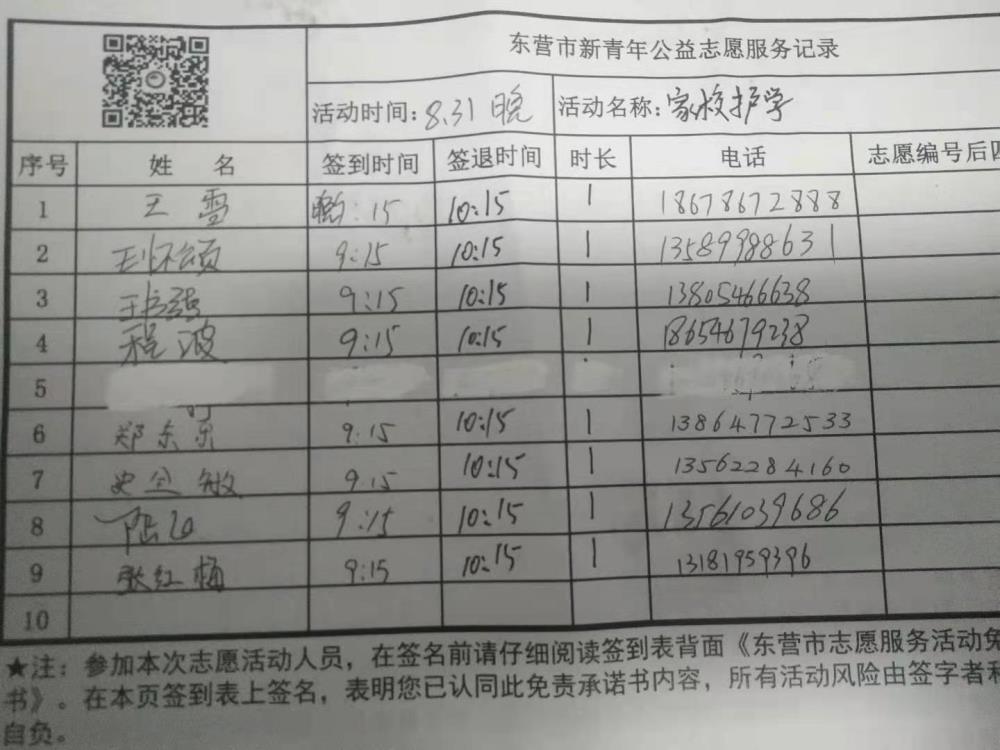 东营市新青年公益志愿服务记录
活动时间：8.31 晚 活动名称：家校护学
序号 姓 名 签到时间 签退时间 时长 电话 志愿编号后四
1 王雪 :15 10:15 1 18678672888
2 王怀颂 9:15 10:15 1 13589988631
3 9:15 10:15 1 13805466638
4 程波 9:15 10:15 1 18654679238
5
6 郑东东 9:15 10:15 1 13864772533
7 史全敏 9:15 10:15 1 13562284160
8 陆 9:15 10:15 1 13561039686
9 张红梅 9:15 10:15 1 13181959396
10
★注：参加本次志愿活动人员，在签名前请仔细阅读签到表背面《东营市志愿服务活动免
书》。在本页签到表上签名，表明您已认同此免责承诺书内容，所有活动风险由签字者和
自负。